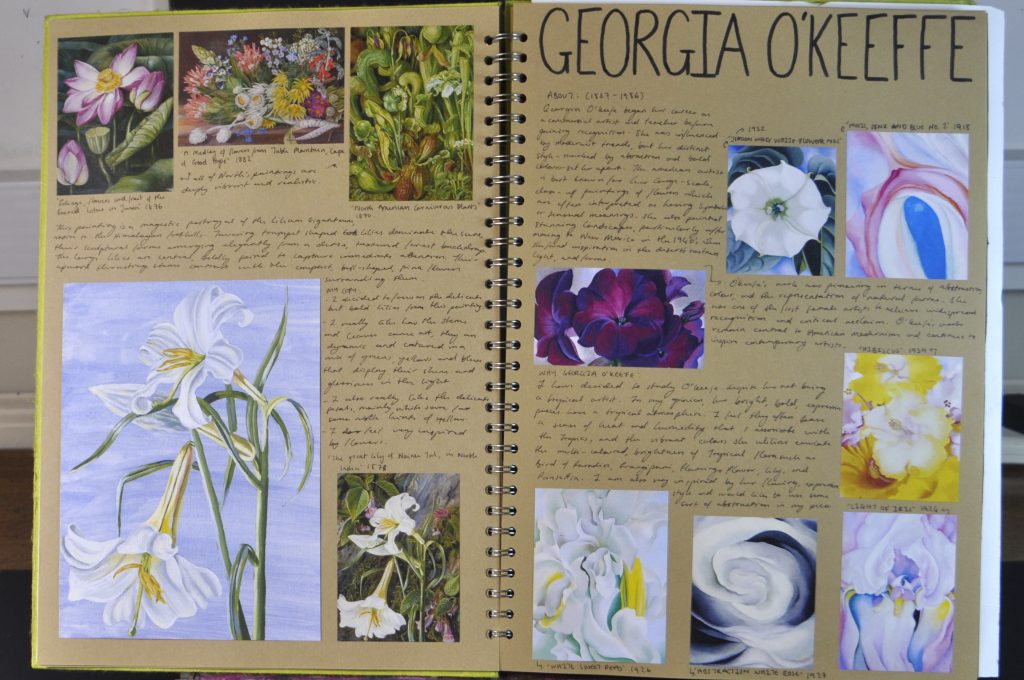 'Foliage, Flowers and fruit of the
Sacred Lotus in Java' 1876
'A Medley of Flowers from Table Mountain, Cape
of Good Hope' 1882
all of North's paintings are
deeply vibrant and realistic
'North American Carnivorous Plants'
This painting is a magnetic portrayal of the Lilium Giganteum
worn in the Himalayan foothills. Amazing trumpet shaped lilies dominate the scene,
their sculptural forms emerging elegantly from a dense, textured forest backdrop.
The large lilies are central, boldly painted to capture immediate attention. Their
upward thrusting stems contrast with the compact, bell-shaped, pink flowers
surrounding them.
MY COPY:
- I decided to focus on the delicate
but bold lilies from this painting
- I really like how the stems
and leaves came out, they are
dynamic and textured in a
mix of greens, yellows and blues
that display their shine and
glossiness in the light
- I also really like the delicate
petals, mainly white some/
some with hints of yellow
- I feel very inspired
by flowers.
'The great lily of Naini Tal, in North
India' 1878
GEORGIA O'KEEFFE
ABOUT: (1887 - 1986)
Georgia O'Keeffe began her career as
a commercial artist and teacher before
gaining recognition. She was influenced
by modernist trends, but her distinct
style - marked by abstraction and bold
colour set her apart. The American artist
is best known for her large-scale,
close-up paintings of flowers which
are often interpreted as having symbolic
or sensual meanings. She also painted
stunning landscapes, particularly after
moving to New Mexico in the 1940's. She
found inspiration in the desert's vastness,
light, and forms.
1932
'JIMSON WEED WHITE FLOWER NO 1'
'MUSIC PINK AND BLUE NO. 2' 1918
O'Keeffe's work was pioneering in terms of abstraction
colour, and the representation of natural forms. She
was one of the first female artists to achieve widespread
recognition and critical acclaim. O'Keeffe's work
remains central to American modernism and continues to
inspire contemporary artists.
'HIBISCUS' 1939
WHY GEORGIA O'KEEFFE:
I have decided to study O'Keeffe despite her not being
a tropical artist. In my opinion her bright, bold, expressive
pieces have a tropical atmosphere. I feel they often have
a sense of heat and humidity that I associate with
the Tropics, and the vibrant colours she utilises emulate
the multi-coloured, brightness of Tropical flowers such as
Bird of Paradise, Frangipani, Flamingo flower, Lily, and
Poinsettia. I am also very inspired by her flowing, expressive
style and would like to use some
sort of abstraction in my piece
'LIGHT OF IRIS' 1924
'WHITE SWEET PEAS' 1926
'ABSTRACTION WHITE ROSE' 1927